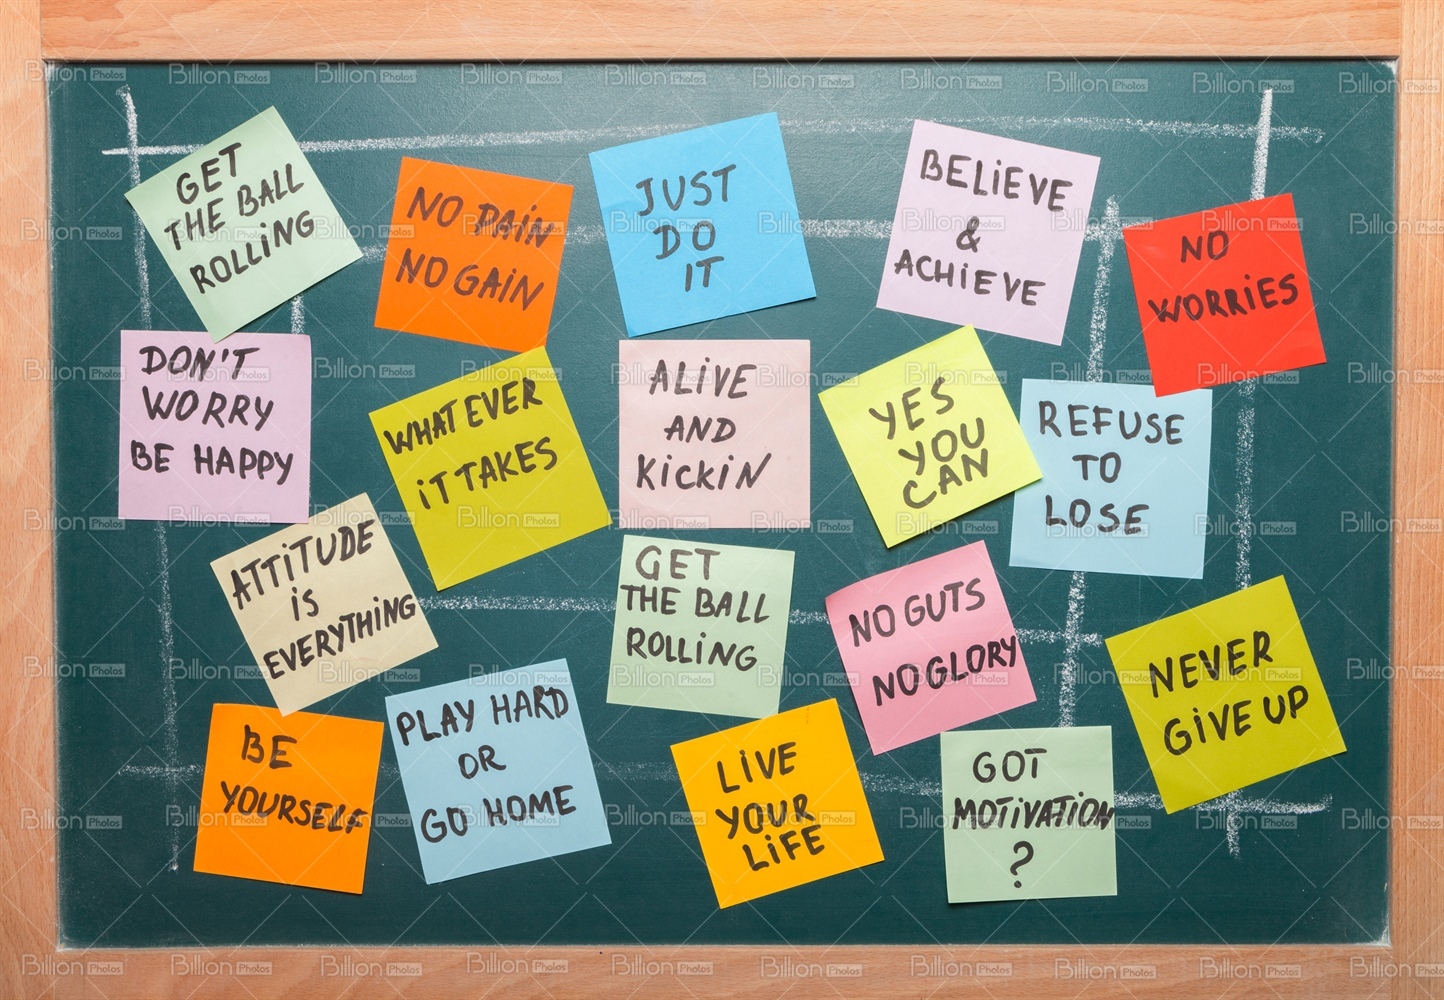 GET
THE BALL
ROLLiNG
NO PAIN
NO GAIN
JUST
DO
IT
BELiEVE
&
ACHiEVE
NO
WORRiES
DON'T
WORRY
BE HAPPY
WHATEVER
iT TAKES
ALiVE
AND
KiCKiN
YES
YOU
CAN
REFUSE
TO
LOSE
ATTiTUDE
iS
EVERYTHiNG
GET
THE BALL
ROLLiNG
NO GUTS
NO GLORY
NEVER
GiVE UP
BE
YOURSELF
PLAY HARD
OR
GO HOME
LiVE
YOUR
LiFE
GOT
MOTiVATiON
?
Billion Photos